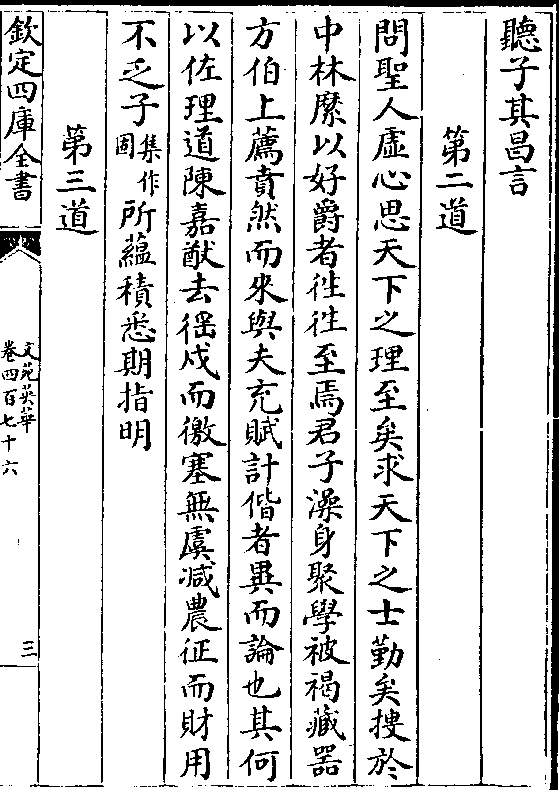 聽子其昌言
第二道
問聖人虛心思天下之理至矣求天下之士勤矣搜於
中林縻以好爵者徃徃至焉君子澡身聚學被褐藏器
方伯上薦賁然而來與夫充賦計偕者異而論也其何
以佐理道陳嘉猷去徭戍而徼塞無虞减農征而財用
不乏子集作固所蘊積悉期指明
第三道
欽定四庫全書
文苑英華
卷四百七十六
三